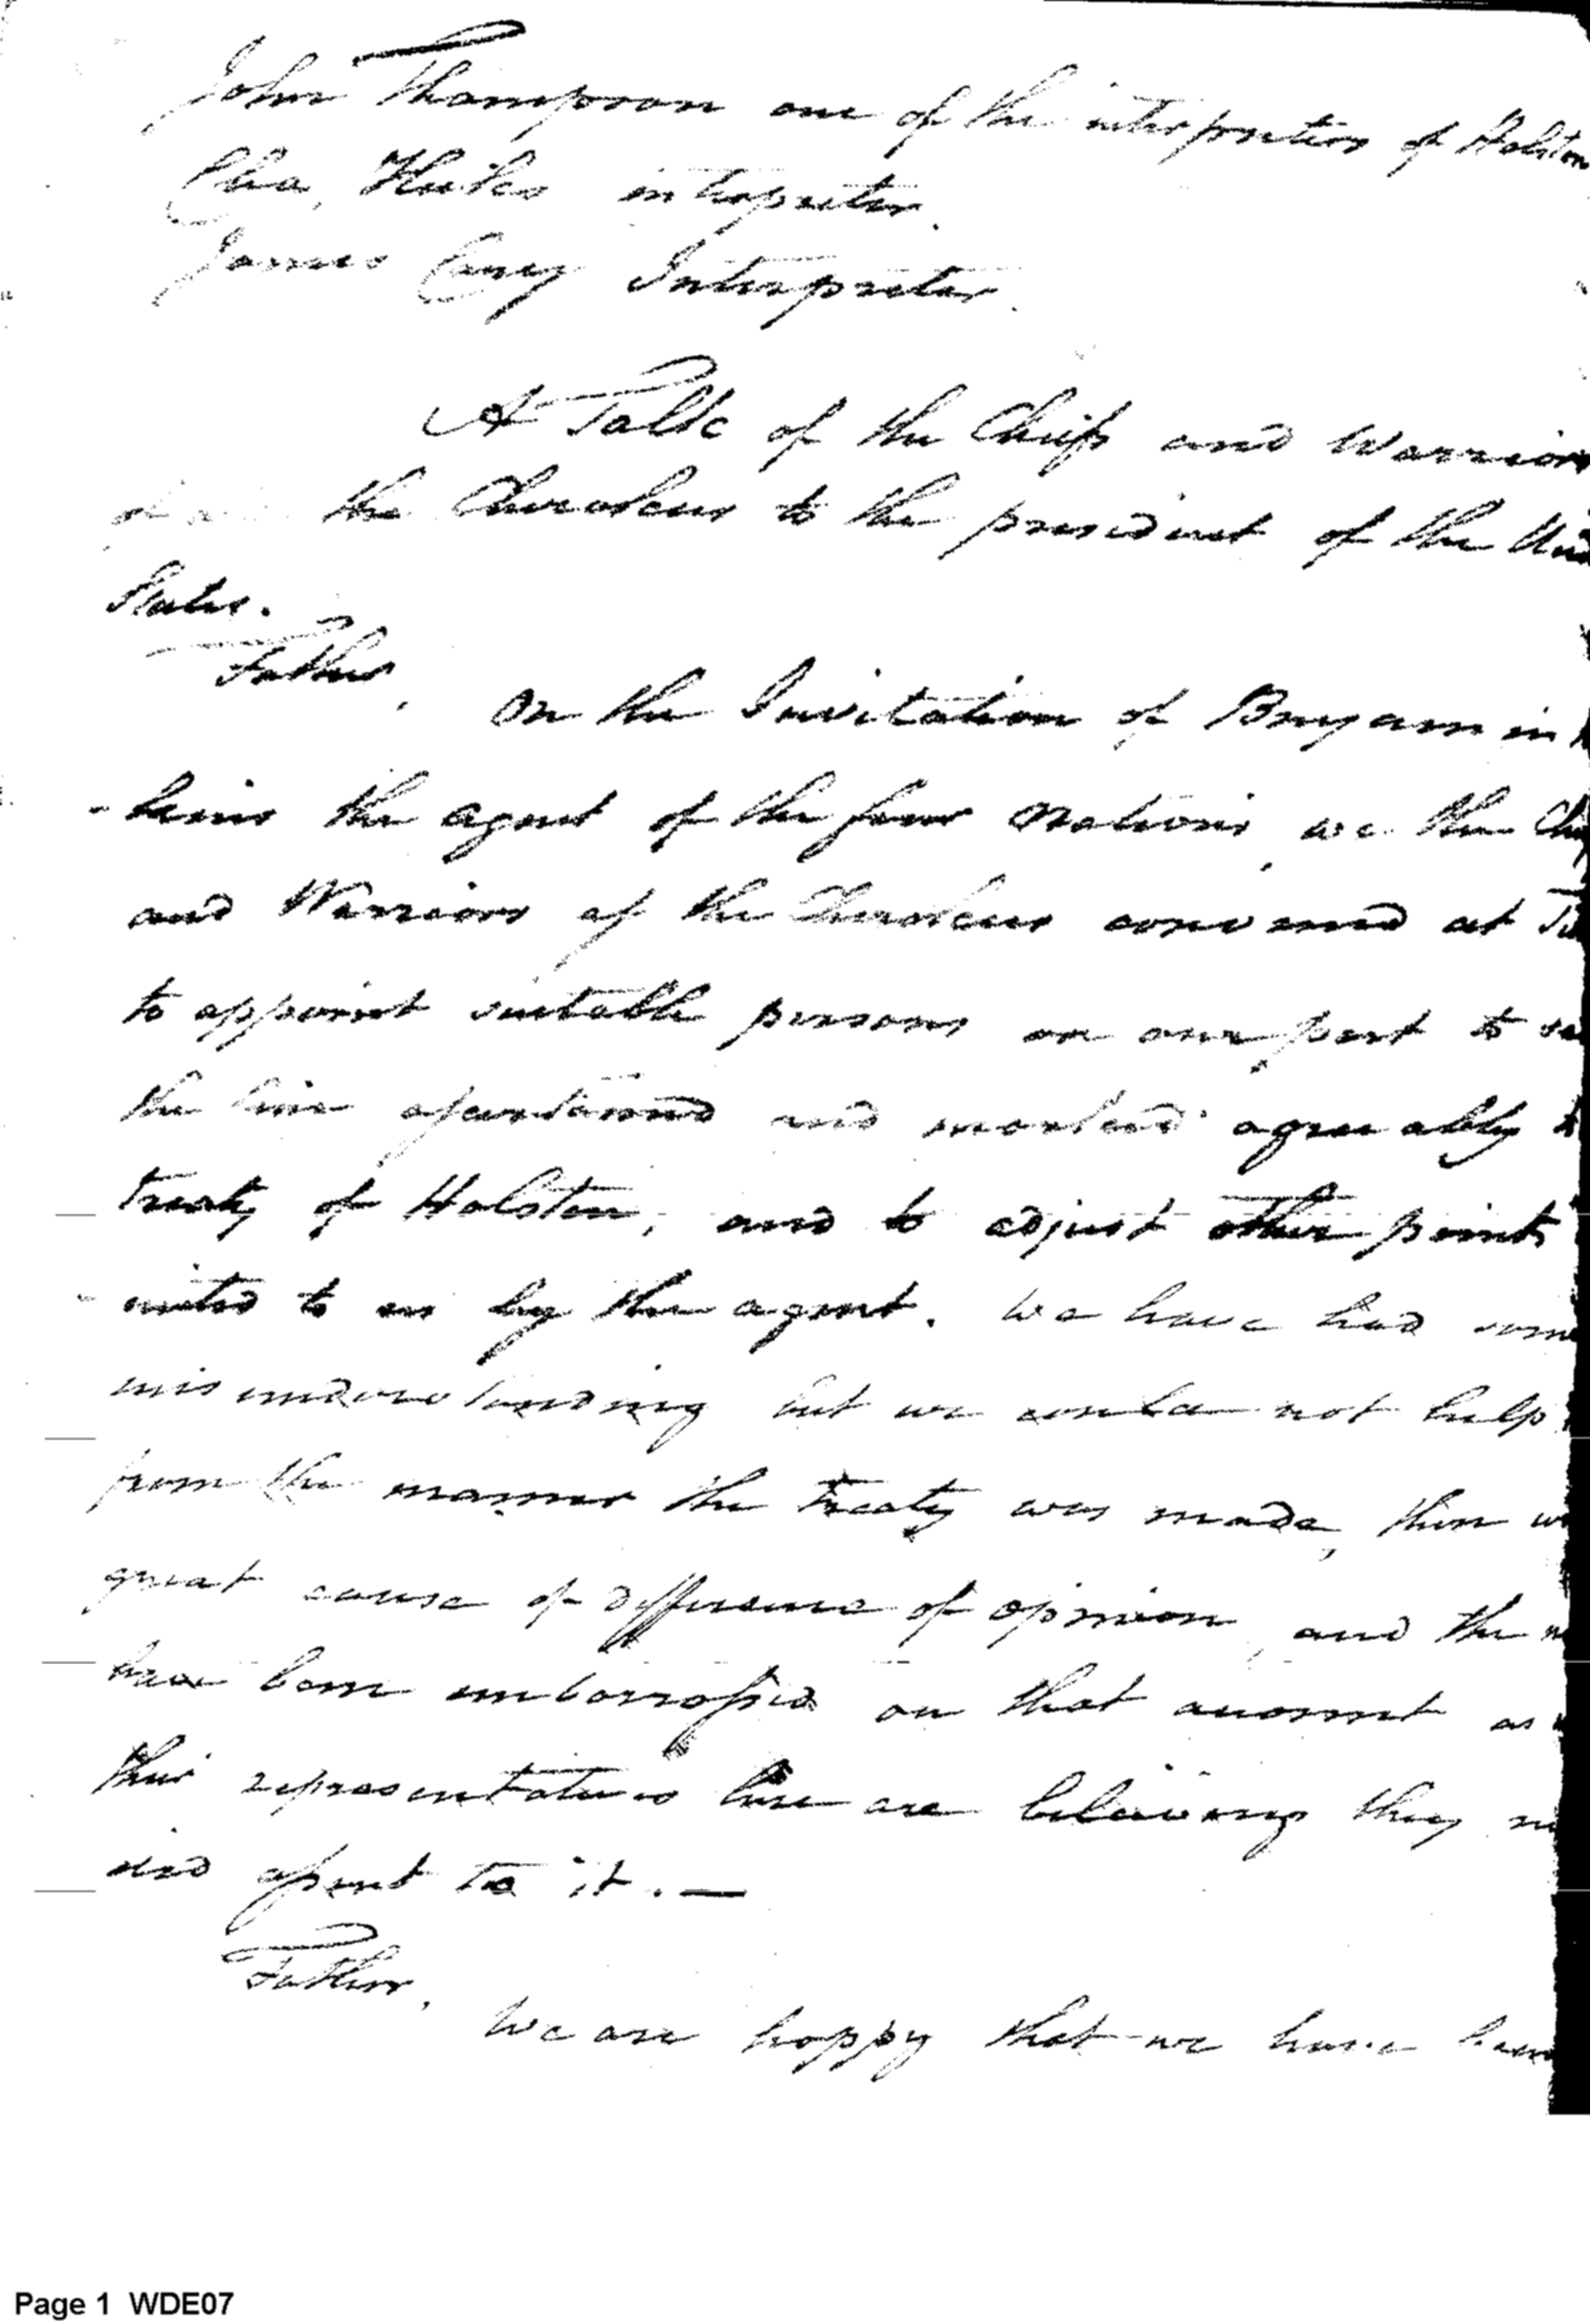 John Thompson one of the interpreters of Holston
Cha. Hicks interpreter.
James Cary Interpreter.
A Talk of the Chiefs and Warriors
the Cherokees to the president of the
States.
Father,
On the Invitation of Benjamin
-kins the agent of the four nations, we the
and Warriors of the Cherokees convened at
to appoint suitable persons on our part to
the line assertained and marked agreeably
treaty of Holston, and to adjust other points
-mited to us by the agent. We have had some
misunderstanding but we could not help
from the manner the treaty was made, there
great cause of difference of opinion, and the
have been embarrassed on that account as
their representatives here are believing they
did assent to it. —
Father,
We are happy that we have been
Page 1 WDE07